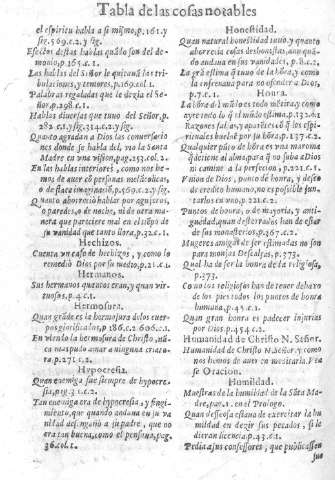 Tabla de las cosas notables
el espiritu habla a si mismo, p. 161. y
sig. 569. c. 2. y sig.
Efectos destas hablas quãdo son del de-
monio, p. 165. c. 1.
Las hablas del Señor le quietauã las tri-
bulaciones, y temores, p. 169. col 1.
Palabras regaladas que le dezia el Se-
ñor, p. 298. c. 1.
Hablas diuersas que tuuo del Señor, p.
282 c. 1. y sig. 314. c. 2. y sig.
Quanto agradan a Dios las conuersacio
nes donde se habla del, vio la Santa
Madre en vna vision, pag. 253. col. 2.
En las hablas interiores, como nos he-
mos de auer cõ personas melãcolicas,
o de flaca imaginaciõ, p. 569. c. 2. y sig.
Quanto aborrecio hablar por agujeros,
o paredes, o de noche, ni de otra ma-
nera que pareciere mal en el tiẽpo de
su vanidad que tanto llora, p. 32. c. 1.
Hechizos.
Cuenta vn caso de hechizos, y como lo
remediò Dios por su medio, p. 21. c. 1.
Hermanos.
Sus hermanos quantos eran, y quan vir-
tuosos. p. 4. c. 1.
Hermosura.
Quan grãde es la hermosura delos cuer-
pos glorificados, p. 186. c. 2. 606. c. 1.
En viendo la hermosura de Christo, nũ-
ca mas pudo amar a ninguna criatu-
ra. p. 271. c. 2.
Hypocresia.
Quan enemiga fue siempre de hypocre-
sia, pag. 31. c. 2.
Tan enemiga era de hypocresia, y fingi-
miento, que quando andaua en su va
nidad desengañò a su padre, que no
era tan buena, como el pensaua, pag.
36. col. 1.
Honestidad.
Quan natural honestidad tuuo, y quanto
aborrecia cosas deshonestas, aun quã-
do andaua en sus vanidades, p. 8. c. 2.
La grã estima q̃ tuuo de la hõra, y como
la enseñaua para no ofender a Dios,
p. 7. c. 1.
Honra.
La hõra del mũdo es todo mẽtira, y como
ayre todo lo q̃ el mũdo estima, p. 132. c. 2
Razones falsas, y aparẽtes cõ q̃ los espi-
rituales bueluẽ por su hõra, p. 137. c. 2.
Qualquier pũto de hõra es vna maroma
q̃ detiene al alma, para q̃ no suba a Dios
ni camine a la perfeccion, p. 221. c. 1.
Vnion de Dios, punto de honra, y desseo
de credito humano, no es possible jun-
tarlos en vno, p. 221. c. 2.
Puntos de honra, o de mayoria, y anti-
guedad, quan desterrados han de estar
de sus monasterios, p. 367. c. 2.
Mugeres amigas de ser estimadas no son
para monjas Descalças, p. 373.
Qual ha de ser la honra de la religiosa,
p. 373.
Como los religiosos han de tener debaxo
de los pies todos los puntos de honra
humana, p. 45. c. 1.
Quan gran honra es padecer injurias
por Dios. p. 454. c. 2.
Humanidad de Christo N. Señor.
Humanidad de Christo N. Señor, y como
nos hemos de auer en meditarla. Vea
se Oracion.
Humildad.
Muestras de la humildad de la Sãta Ma-
dre, par. 1. en el Prologo.
Quan desseosa estaua de exercitar la hu
mildad en dezir sus pecados, si le
dieran licencia, p. 43. c. 1.
Pedia a sus confessores, que publicassen
sus